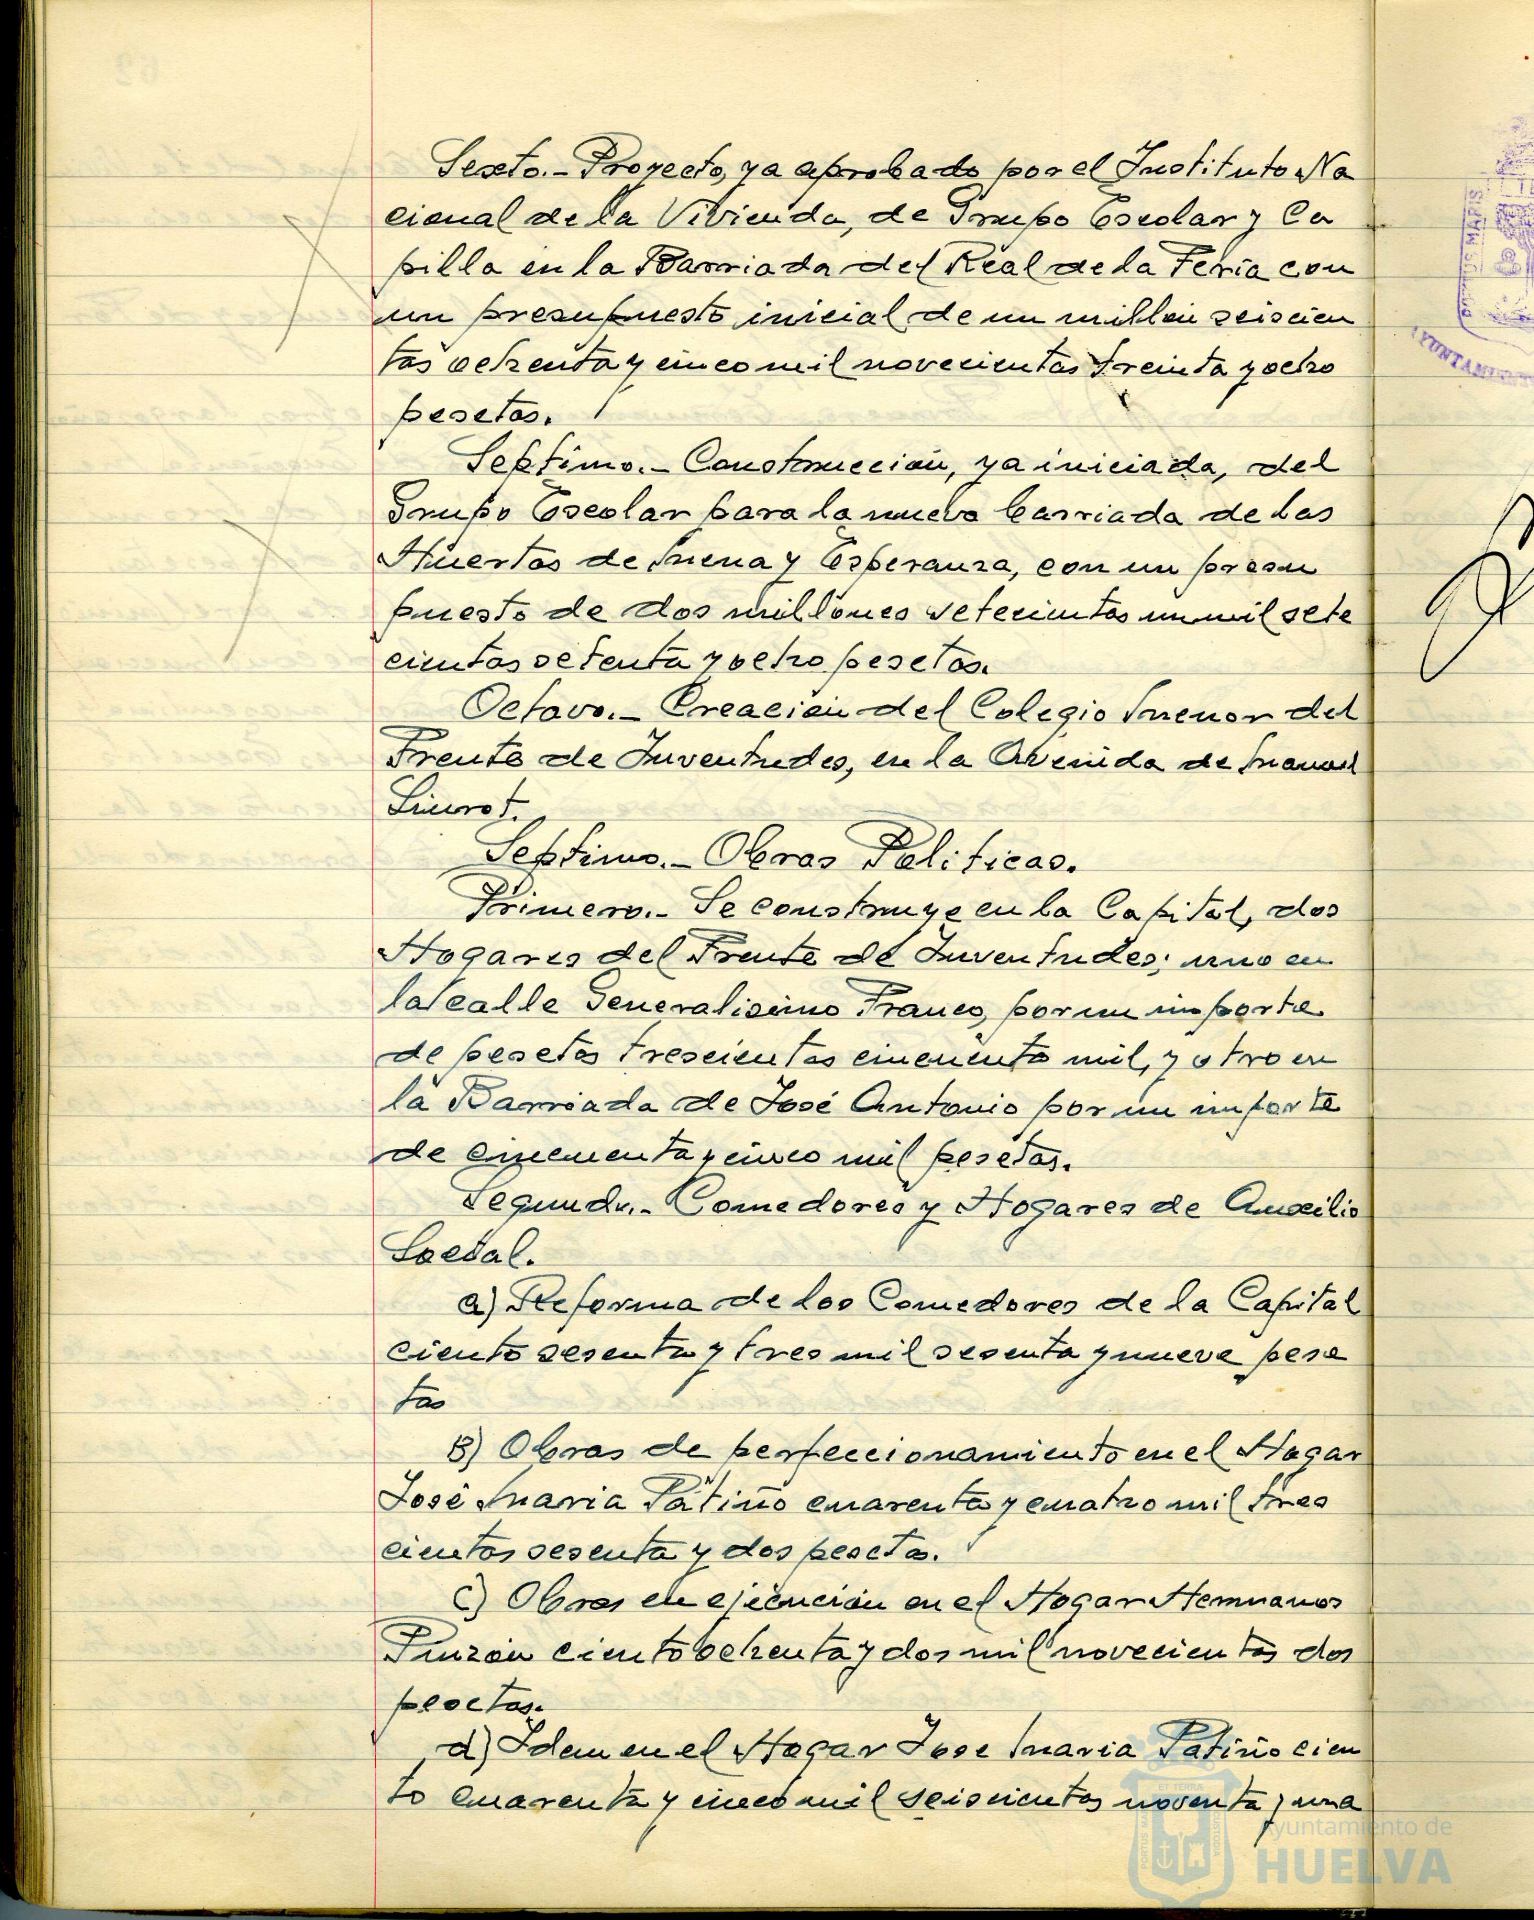 Sexto.- Proyecto, ya aprobado por el Instituto Na
cional de la Vivienda, de Grupo Escolar y Ca
pilla en la Barriada del Real de la Feria con
un presupuesto inicial de un millón seiscien
tas ochenta y cinco mil novecientas treinta y ocho
pesetas.
Septimo.- Construcción, ya iniciada, del
Grupo Escolar para la nueva barriada de las
Huertas de Mena y Esperanza, con un presu
puesto de dos millones setecientas un mil sete
cientas setenta y ocho pesetas.
Octavo.- Creación del Colegio Menor del
Frente de Juventudes, en la Avenida de Manuel
Siurot.
Septimo.- Obras Politicas.
Primero.- Se construye en la Capital, dos
Hogares del Frente de Juventudes; uno en
la calle Generalisimo Franco, por un importe
de pesetas trescientas cincuenta mil, y otro en
la Barriada de José Antonio por un importe
de cincuenta y cinco mil pesetas.
Segundo.- Comedores y Hogares de Auxilio
Social.
a) Reforma de los Comedores de la Capital
ciento sesenta y tres mil sesenta y nueve pese
tas
B) Obras de perfeccionamiento en el Hogar
José Maria Patiño cuarenta y cuatro mil tres
cientas sesenta y dos pesetas.
C) Obras en ejecución en el Hogar Hermanos
Pinzón ciento ochenta y dos mil novecientas dos
pesetas.
d) Idem en el Hogar Jose Maria Patiño cien
to cuarenta y cinco mil seiscientas noventa y una
PORTUS MARIS
AYUNTAMIENT
ET TERRÆ
PORTUS MA
CUSTODIA
Ayuntamiento de
HUELVA